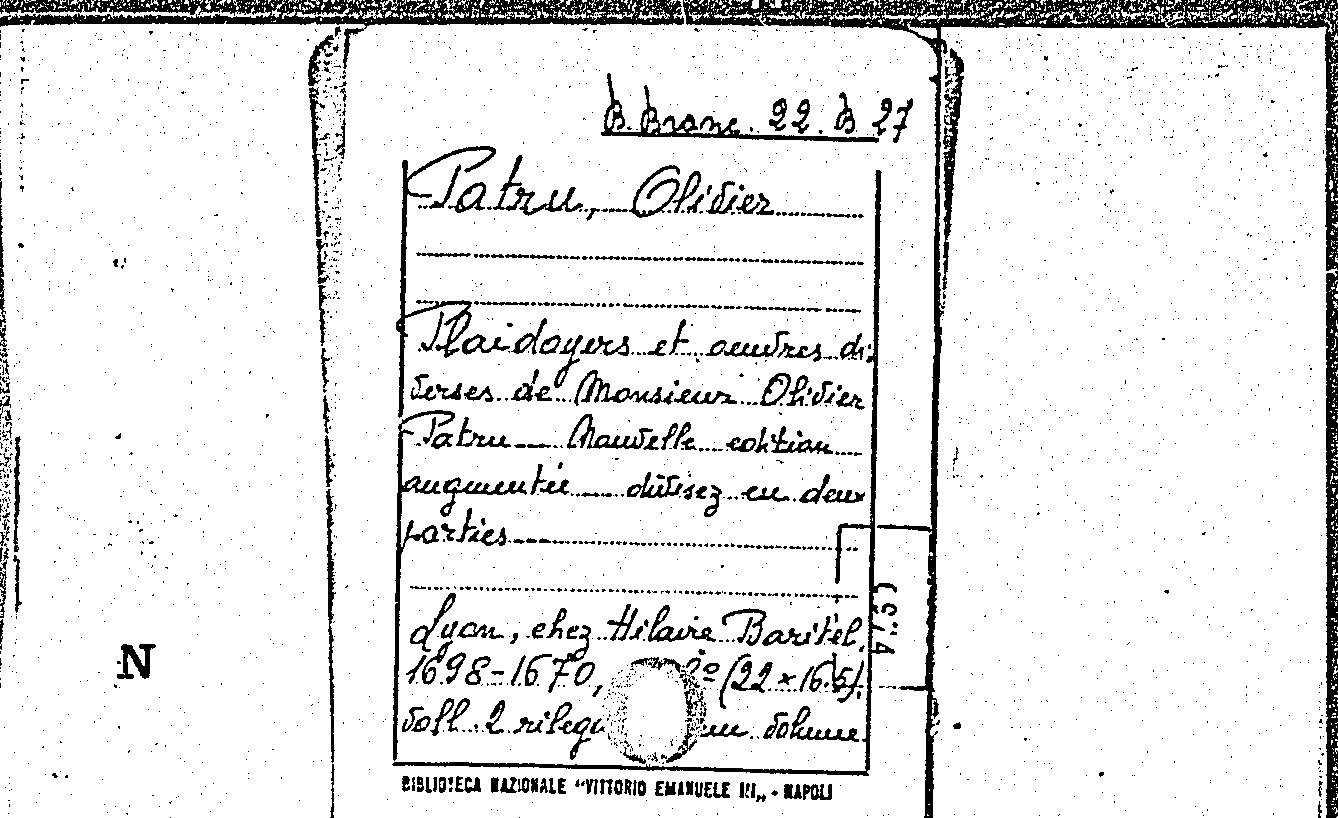 B. Branc. 22. B 27
Patru, Olivier
Plaidoyers et oeuvres di-
verses de Monsieur Olivier
Patru... Nouvelle edition
augmentée... divisez en deux
parties...
Lyon, chez Hilaire Baritel,
1698-1670, º (22 × 16.5).
voll. 2 un volume.
BIBLIOTECA NAZIONALE "VITTORIO EMANUELE III„ - NAPOLI
N